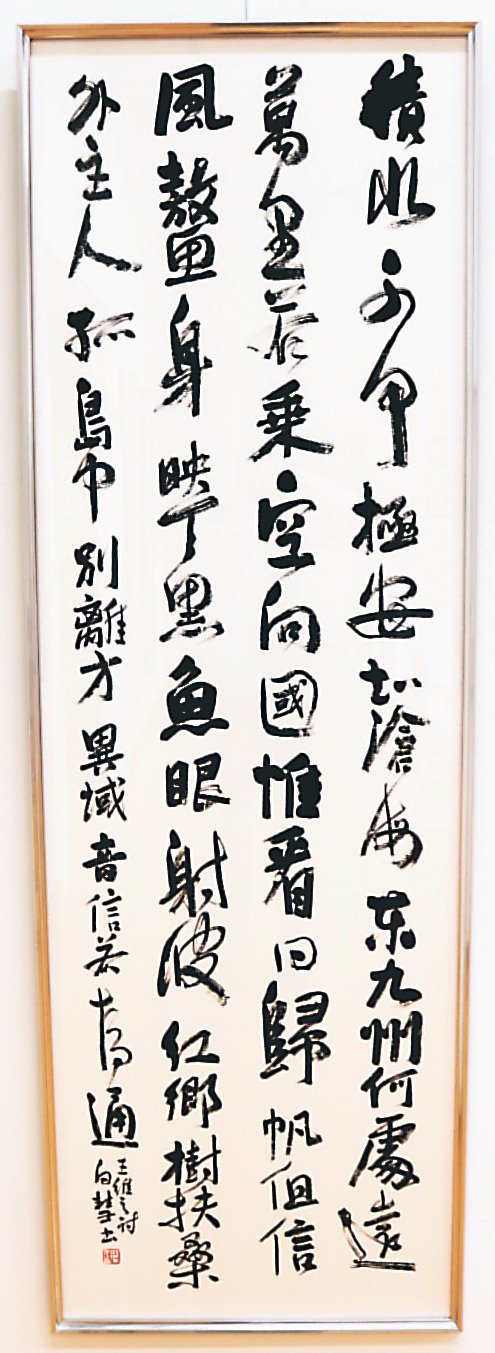 積水不可極安知滄海東九州何處遠
萬里若乘空向國惟看日歸帆但信
風鼇身映天黑魚眼射波紅鄉樹扶桑
外主人孤島中別離方異域音信若為通
王維之詩
白慧書